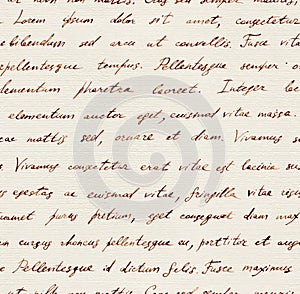 Lorem ipsum dolor sit amet, consectetur
bibendum sed arcu ut convallis. Fusce vita
pellentesque tempus. Pellentesque semper
elementum pharetra laoreet. Integer lac
elementum auctor eget, euismod vitae massa.
ac mattis sed, ornare et diam. Vivamus su
s. Vivamus consectetur erat vitae est lacinia su
s egestas ac euismod vitae, fringilla vitae risu
amet purus pretium, eget consequat diam max
n cursus rhoncus pellentesque eu, porttitor et augu
e Pellentesque id dictum felis. Fusce maximus